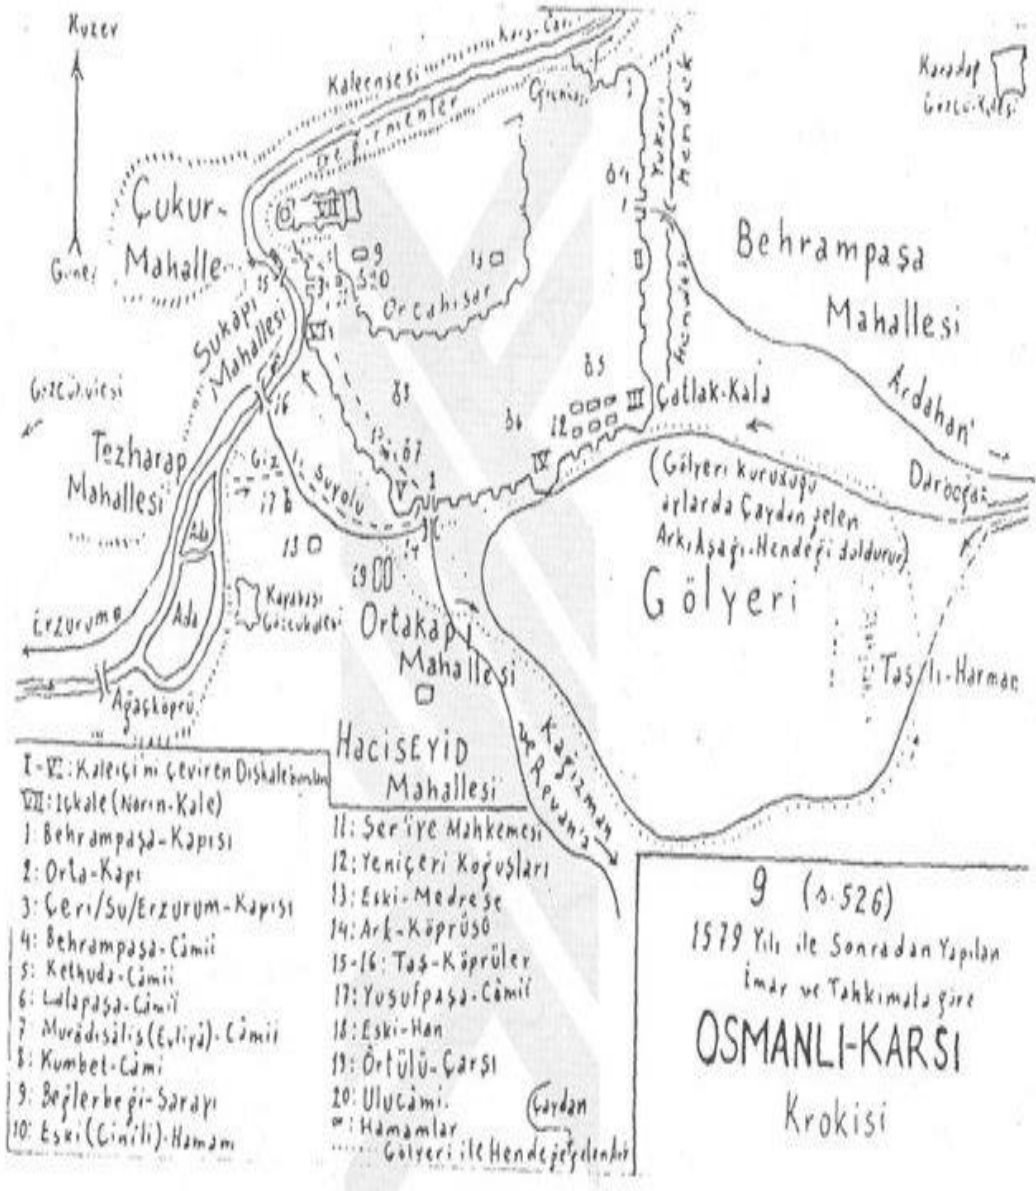 Kuzey
Kars-Çayı
Kaleensesi
Karadağ
Gözcü-Kulesi
Yukarı
Hendek
Çukur-
Mahalle
VII
84
1
Güney
15
9
10
13
Ortahisar
Behrampaşa
Mahallesi
Sukapı
Mahallesi
VI
Hendek
83
85
86
12
III
Çatlak-Kala
Ardahan'
16
Tezharap
Mahallesi
Gizli Suyolu
17
87
V
2
IV
(Gölyeri kuruduğu
aylarda Çaydan gelen
Ark, Aşağı-Hendeği doldurur)
Daroğaz
Gölyeri
Ada
Ada
13
19
14
Karabaşı
Gözcükulesi
Erzuruma
Ortakapı
Mahallesi
Taşlı-Harman
Ağaçköprü
HACISEYİD
Mahallesi
Kağızman
ve Revan'a
I-VI: Kaleiçini çeviren Dışkale burçları
VII: İçkale (Narın-Kale)
1: Behrampaşa-Kapısı
2: Orta-Kapı
3: Çeri/Su/Erzurum-Kapısı
4: Behrampaşa-Câmii
5: Kethuda-Câmii
6: Lalapaşa-Câmii
7 Murâdısâlis (Evliyâ)-Câmii
8: Kumbet-Câmi
9: Beğlerbeği-Sarayı
10: Eski (Çinili)-Hamam
11: Şer'iye Mahkemesi
12: Yeniçeri Koğuşları
13: Eski-Medrese
14: Ark-Köprüsü
15-16: Taş-Köprüler
17: Yusufpaşa-Câmii
18: Eski-Han
19: Örtülü-Çarşı
20: Ulucâmi.
: Hamamlar
Çaydan
Gölyeri ile Hendeğe gelen Ark
9 (s.526)
1579 Yılı ile Sonradan Yapılan
İmar ve Tahkimata göre
OSMANLI-KARSI
Krokisi